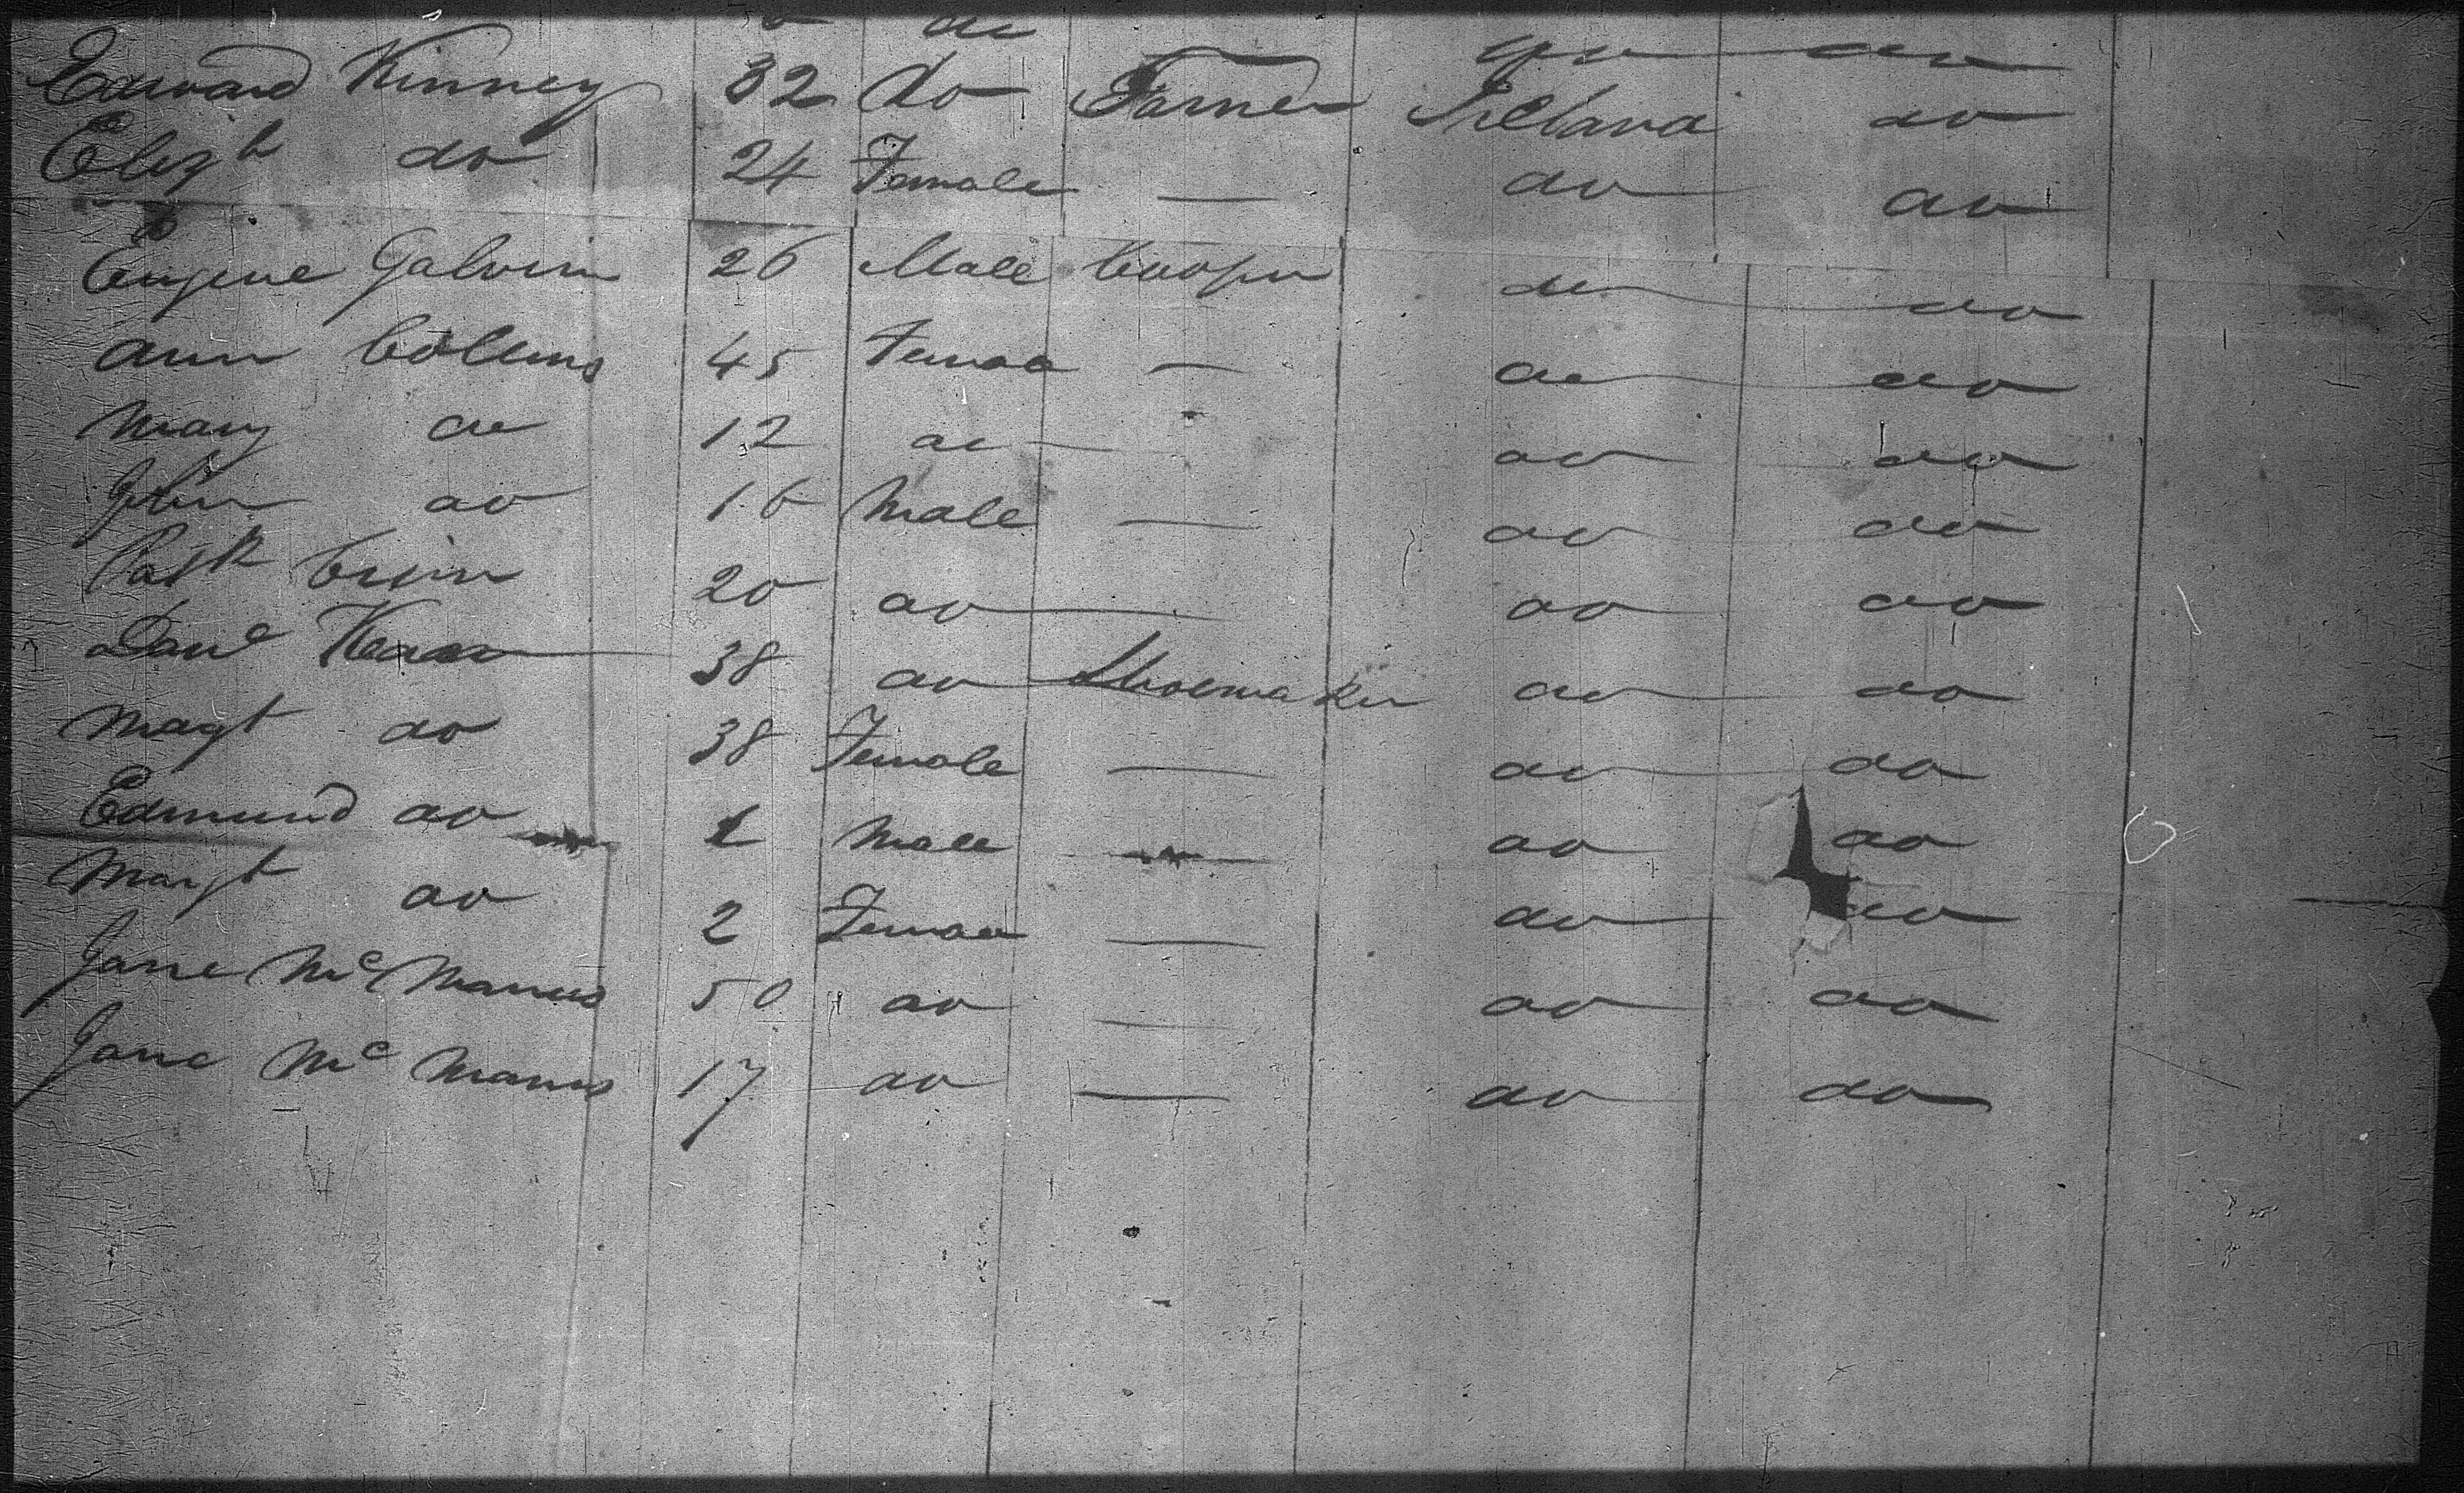 do do do
Edward Kinney 32 do Farmer Ireland do
Elizh do 24 Female — do do
Eugene Galvin 26 Male Cooper do do
Ann Collins 45 Female — do do
Mary do 12 do — do do
John do 16 Male — do do
Patk 20 do — do do
Danl 38 do Shoemaker do do
Magt do 38 Female — do do
Edmund do 1 Male — do do
Margt do 2 Female — do do
Jane Mc Manus 50 do — do do
Jane Mc Manus 17 do — do do